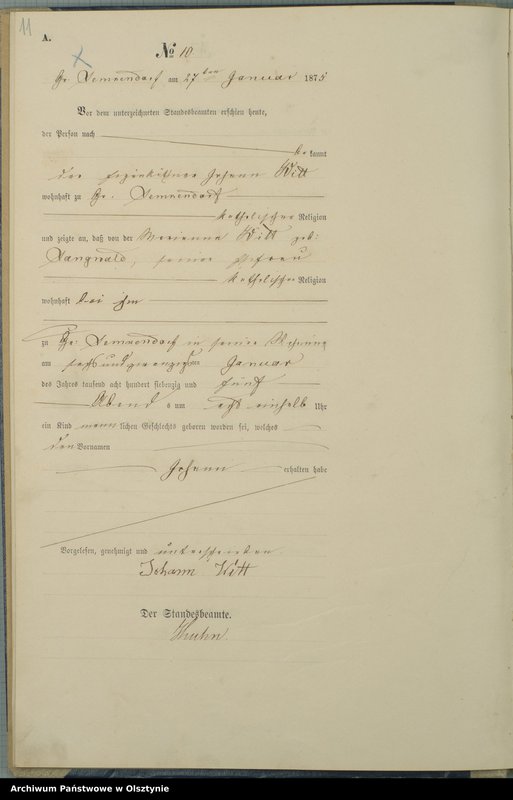 11
A.
№ 10
Gr. Lemkendorf am 27ten Januar 1875
Vor dem unterzeichneten Standesbeamten erschien heute,
der Person nach
bekannt
der Johann Witt
wohnhaft zu Gr. Lemkendorf
katholischer Religion
und zeigte an, daß von der Marianna Witt geb:
Langwald, seiner Ehefrau
katholischer Religion
wohnhaft bei ihm
zu Gr: Lemkendorf in seiner Wohnung
am sechsundzwanzigsten Januar
des Jahres tausend acht hundert siebenzig und fünf
Abends um acht einhalb Uhr
ein Kind männlichen Geschlechts geboren worden sei, welches
den Vornamen
Johann erhalten habe
Vorgelesen, genehmigt und unterschrieben
Johann Witt
Der Standesbeamte.
Archiwum Państwowe w Olsztynie